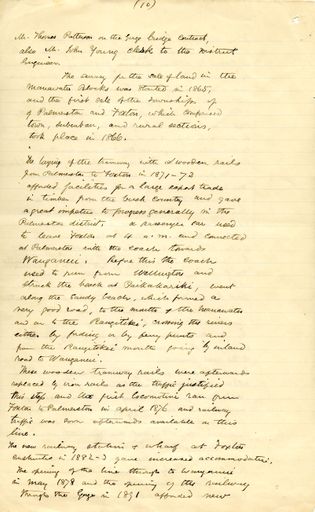 (10)
Mr. Thomas Patterson on the Gorge Bridge Contract,
also Mr. John Young clerk to the District
Engineer.
The survey for the sale of land in the
Manawatu Blocks was started in 1865,
and the first sale of the townships of
of Palmerston and Foxton, which comprised
town, suburban, and rural sections,
took place in 1866.
The laying of the tramway with wooden rails
from Palmerston to Foxton in 1871-72
afforded facilities for a large export trade
in timber from the bush country and gave
a great impetus to progress generally in the
Palmerston district. a passenger car used
to leave Foxton at 4 a.m. and connected
at Palmerston with the coach towards
Wanganui. Before this the coach
used to run from Wellington and
struck the beach at Paikakariki, went
along the sandy beach, which formed a
very good road, to the mouth of the Manawatu
and on to the Rangitikei, crossing the rivers
either by fording or by ferry punts and
from the Rangitikei mouth going by inland
road to Wanganui.
These wooden tramway rails were afterwards
replaced by iron rails as the traffic justified
this step and the first locomotive ran from
Foxton to Palmerston in april 1876 and railway
traffic was soon afterwards available on this
line.
The new railway station & wharf at Foxton
constructed in 1882-3 gave increased accommodation.
The opening of the line through to Wanganui
in May 1878 and the opening of the railway
through the Gorge in 1891 afforded new